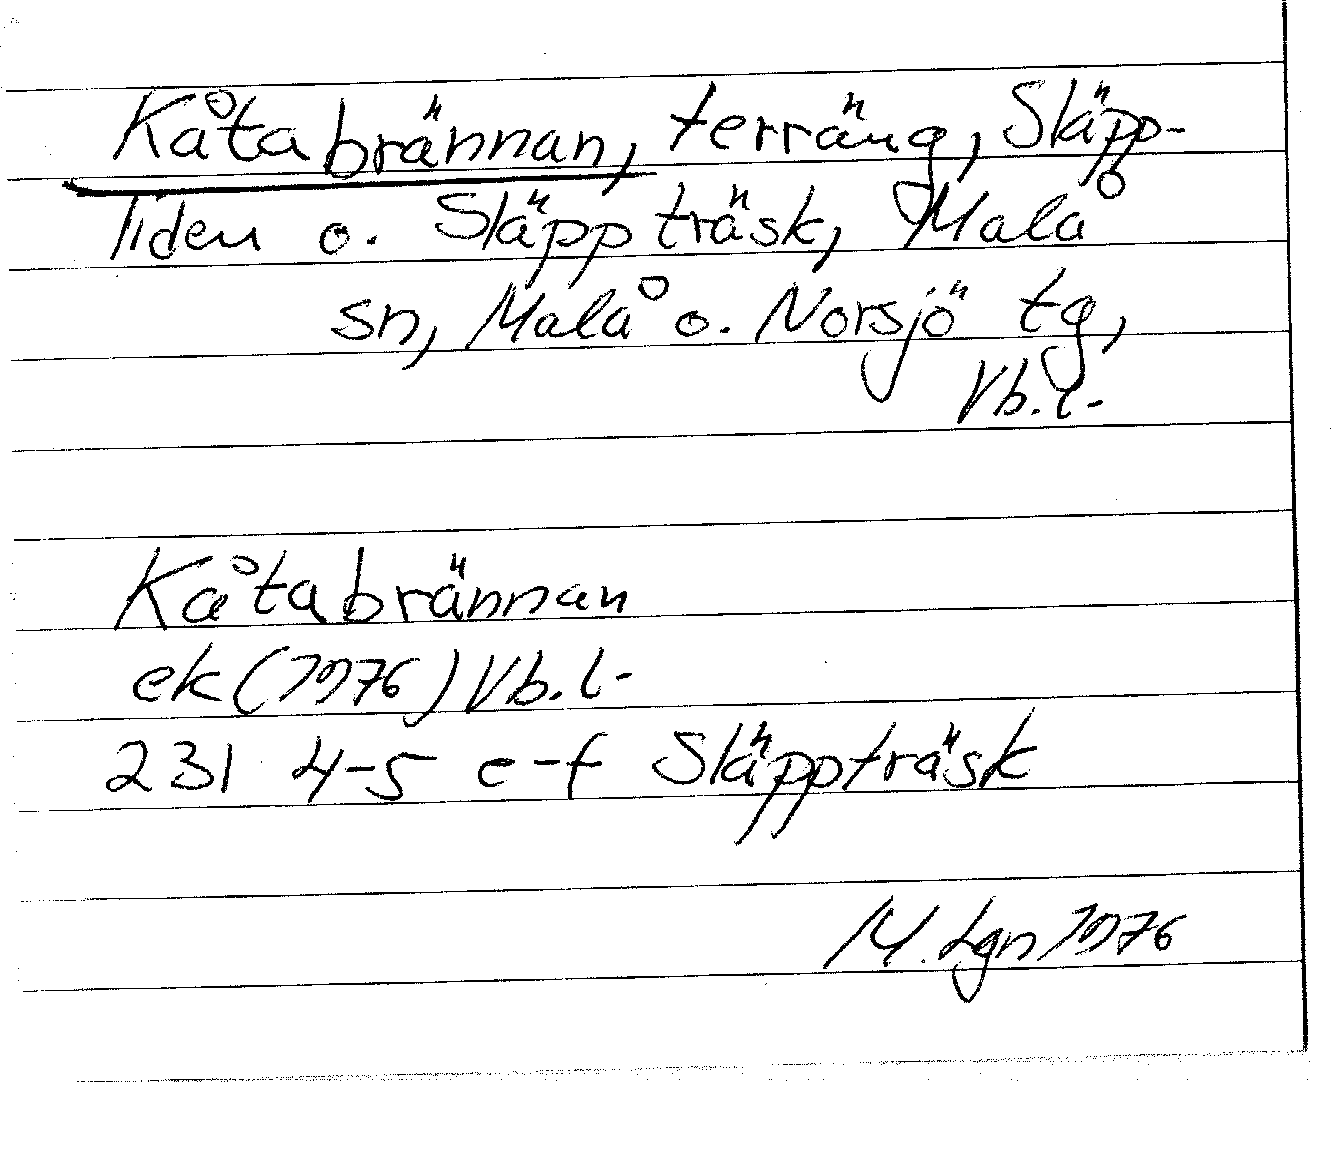 Kåtabrännan, terräng, Släpp-
liden o. Släppträsk, Malå
sn, Malå o. Norsjö tg,
Vb.l.
Kåtabrännan
ek (1976) Vb.l.
231 4-5 e-f Släppträsk
M. Lgn 1976